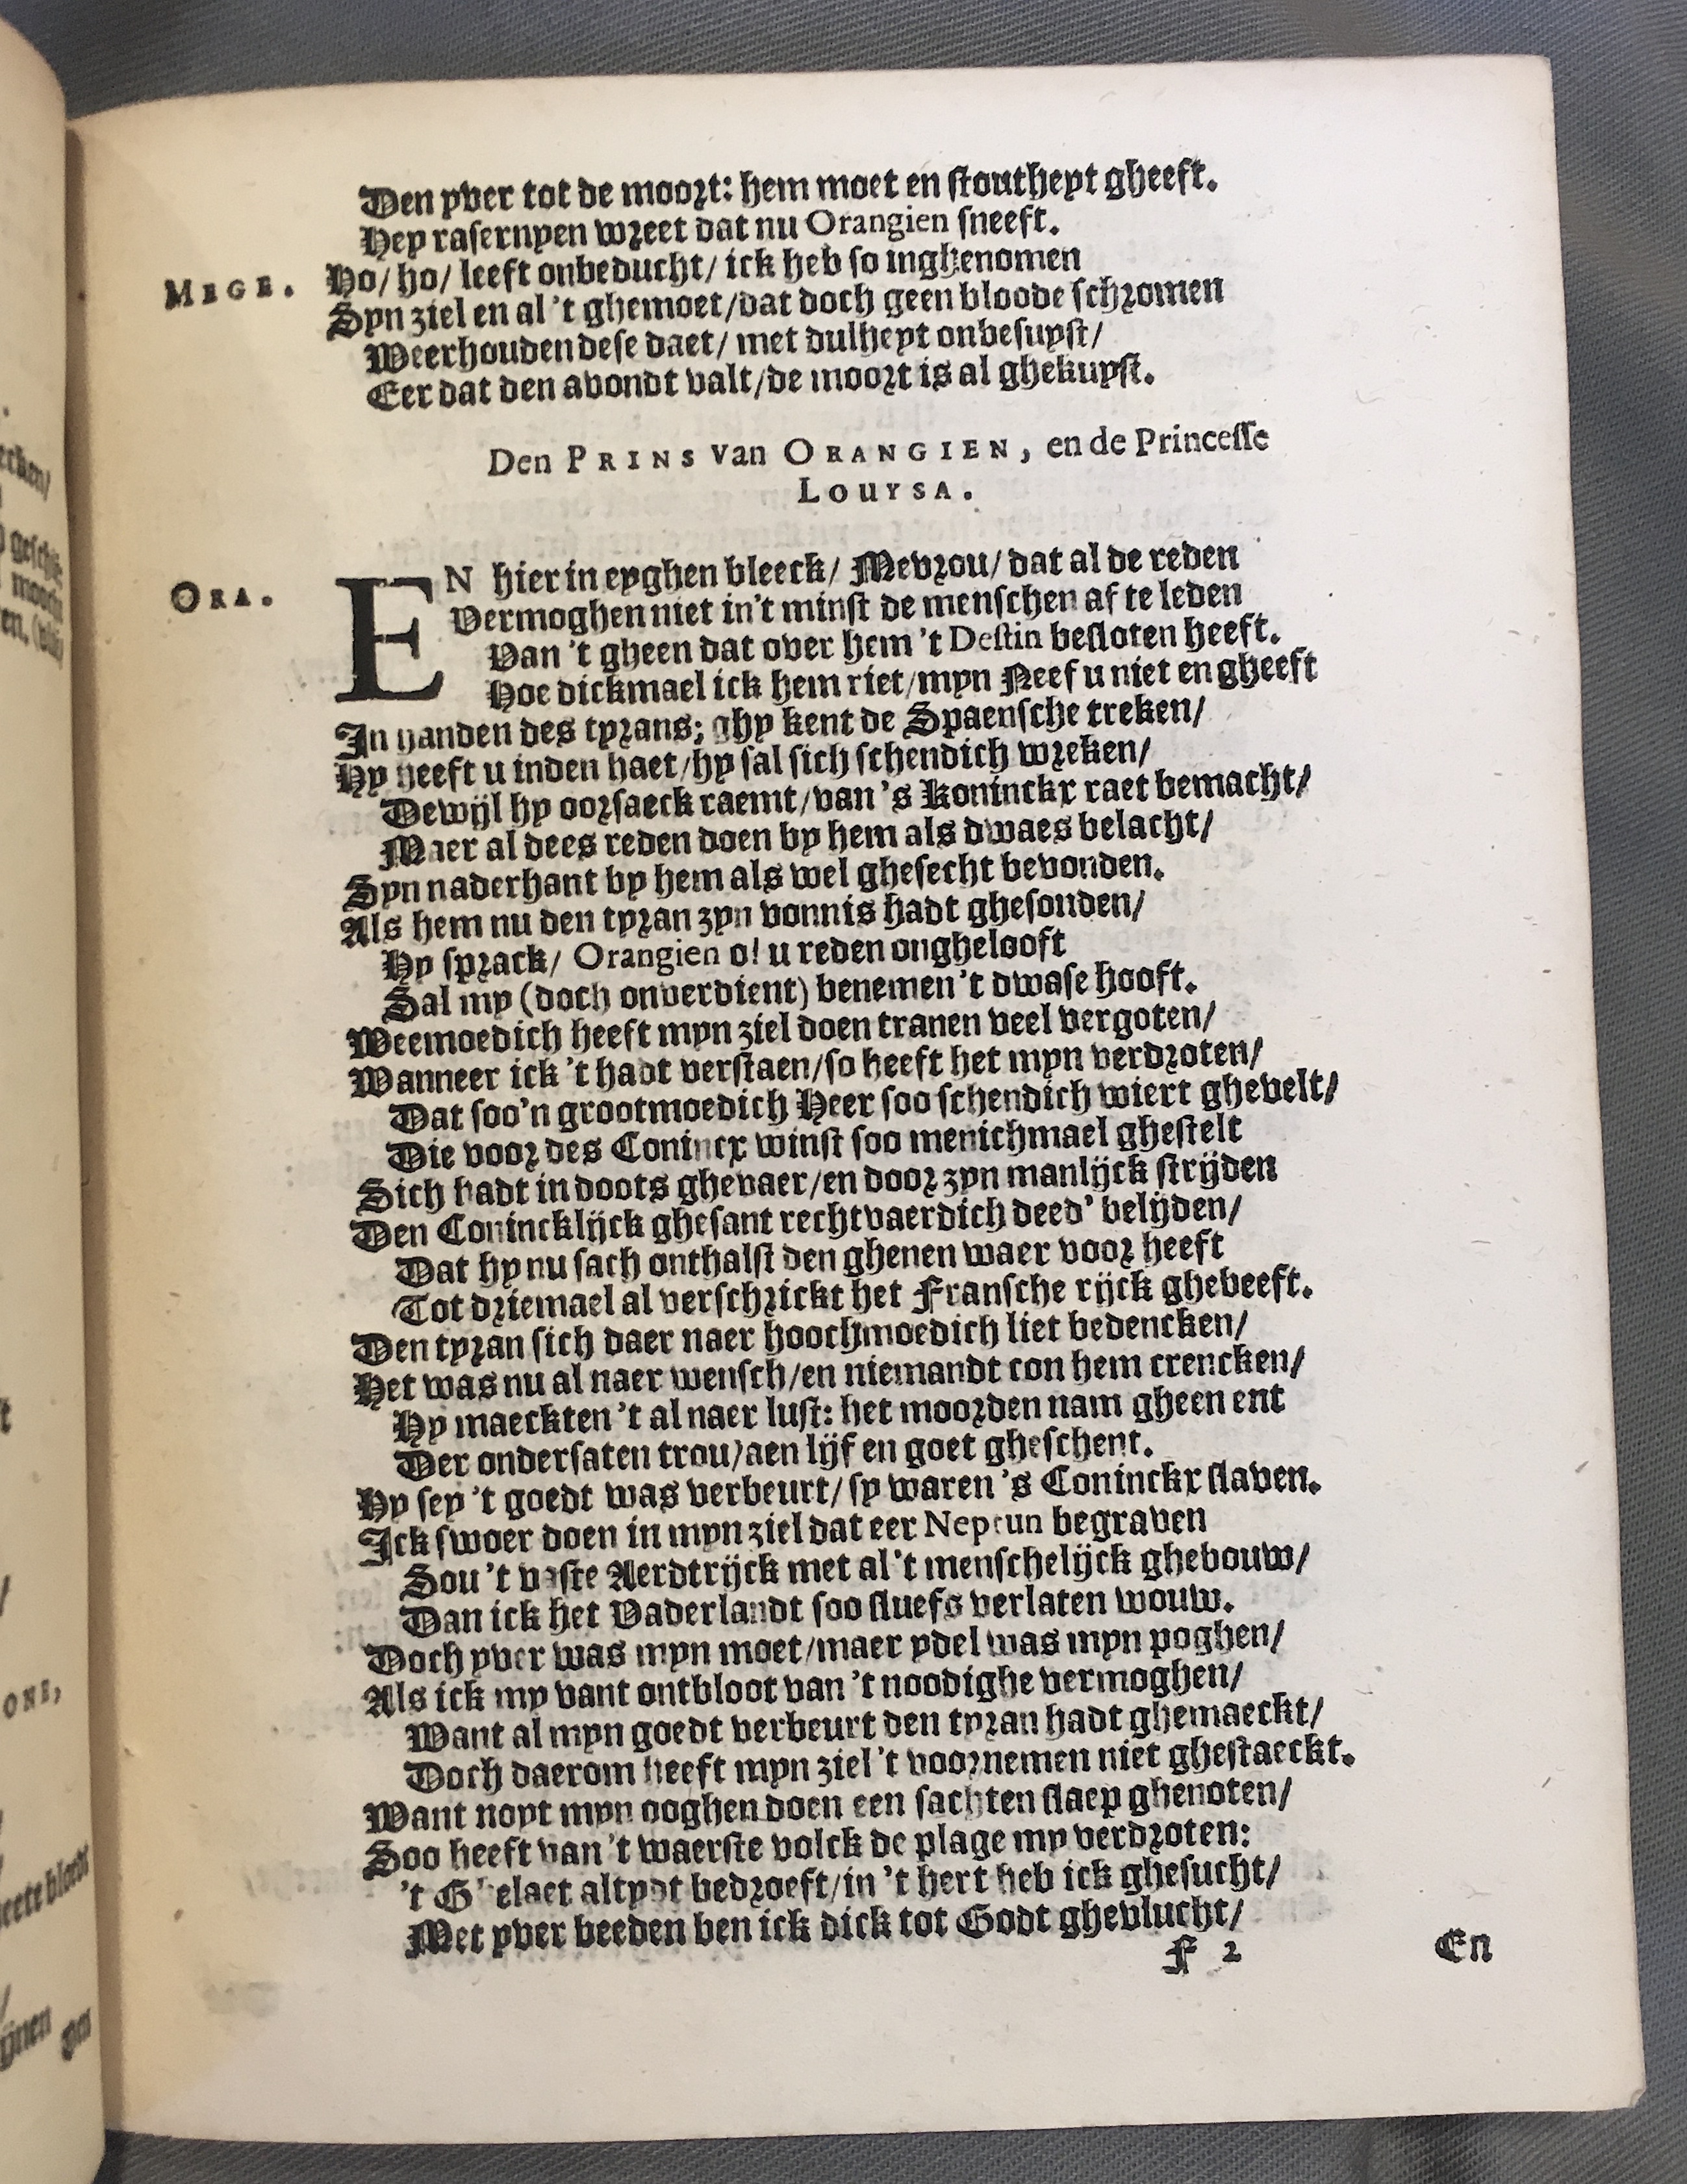 Den yver tot de moort: hem moet en stoutheyt gheeft.
Hey rasernyen wreet dat nu Orangien sneeft.
MEGE. Ho/ ho/ leeft onbeducht/ ick heb so inghenomen
Syn ziel en al 't ghemoet/dat doch geen bloode schromen
Weerhouden dese daet/ met dulheyt onbesuyst/
Eer dat den avondt valt/de moort is al ghekuyst.
Den PRINS van ORANGIEN, en de Princesse
LOUYSA.
ORA. EN hier in eyghen bleeck/ Mevrou/ dat al de reden
Vermoghen niet in't minst de menschen af te leden
Van 't gheen dat over hem 't Destin besloten heeft.
Hoe dickmael ick hem riet/myn Neef u niet en gheeft
In handen des tyrans; ghy kent de Spaensche treken/
Hy heeft u inden haet/hy sal sich schendich wreken/
Dewijl hy oorsaeck raemt/van 's Koninckx raet bemacht/
Maer al dees reden doen by hem als dwaes belacht/
Syn naderhant by hem als wel ghesecht bevonden.
Als hem nu den tyran zyn vonnis hadt ghesonden/
Hy sprack/ Orangien o! u reden onghelooft
Sal my (doch onverdient) benemen 't dwase hooft.
Weemoedich heeft myn ziel doen tranen veel vergoten/
Wanneer ick 't hadt verstaen/so heeft het myn verdroten/
Dat soo'n grootmoedich Heer soo schendich wiert ghevelt/
Die voor des Conincx winst soo menichmael ghestelt
Sich hadt in doots ghevaer/en door zyn manlijck strijden
Den Conincklijck ghesant rechtvaerdich deed' belijden/
Dat hy nu sach onthalst den ghenen waer voor heeft
Tot driemael al verschrickt het Fransche rijck ghebeeft.
Den tyran sich daer naer hoochmoedich liet bedencken/
Het was nu al naer wensch/en niemandt con hem crencken/
Hy maeckten 't al naer lust: het moorden nam gheen ent
Der ondersaten trou/aen lijf en goet gheschent.
Hy sey 't goedt was verbeurt/ sy waren 's Coninckx slaven.
Ick swoer doen in myn ziel dat eer Neptun begraven
Sou 't vaste Aerdtrijck met al 't menschelijck ghebouw/
Dan ick het Vaderlandt soo sluefs verlaten wouw.
Doch yver was myn moet/maer ydel was myn poghen/
Als ick my vant ontbloot van 't noodighe vermoghen/
Want al myn goedt verbeurt den tyran hadt ghemaeckt/
Doch daerom heeft myn ziel 't voornemen niet ghestaeckt.
Want noyt myn ooghen doen een sachten slaep ghenoten/
Soo heeft van 't waerste volck de plage my verdroten:
't Ghelaet altydt bedroeft/in 't hert heb ick ghesucht/
Met yver beeden ben ick dick tot Godt ghevlucht/
F 2 En